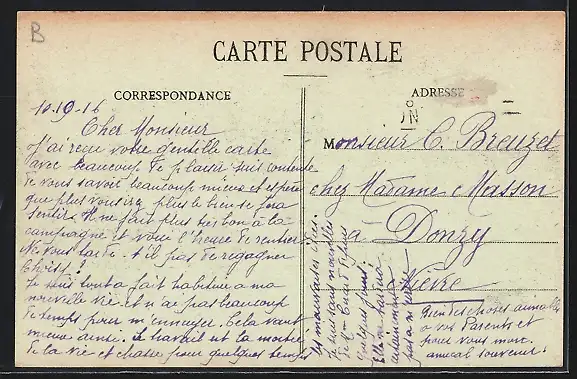 B
CARTE POSTALE
CORRESPONDANCE
ADRESSE
10.9.16
Cher Monsieur
J'ai reçu votre gentille carte
avec beaucoup de plaisir suis contente
de vous savoir beaucoup mieux et espère
que plus vous irez plus le bien se fera
sentir. Il ne fait plus très bon à la
campagne et voici l'heure de rentrer.
Ne vous tarde-t-il pas de regagner
Je suis tout a fait habituée a ma
nouvelle vie et n'ai pas beaucoup
de temps pour m'ennuyer. Cela vaut
mieux ainsi. Le travail est la moitié
de la vie et chasse pour quelques temps
les mauvaises idées.
Je suis sans nouvelles
de
quelques jours
Elle ne tardera
certainement
pas a m'écrire
Bien des choses aimables
a vos Parents et
pour vous mon
amical souvenir.
Monsieur C. Breuzet
chez Madame Masson
à Donzy
Nièvre